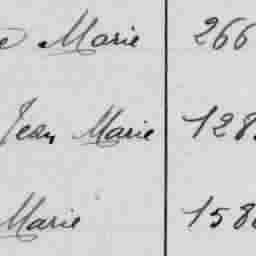 Marie 266
Jean Marie 128
Marie 158